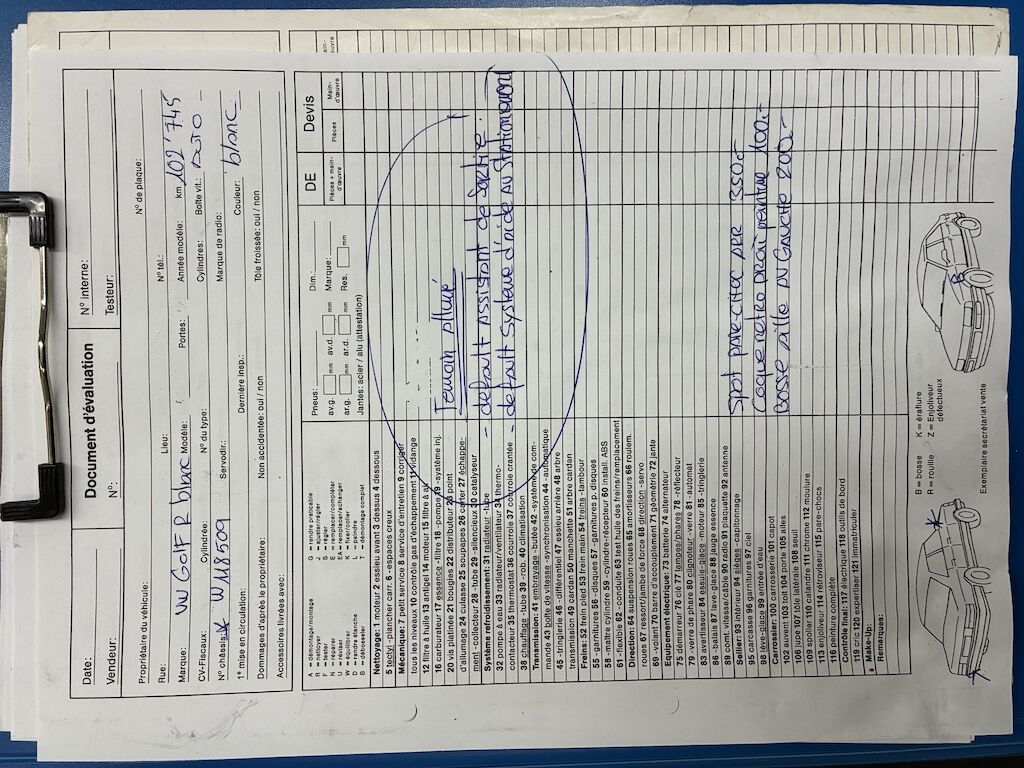 Document d'évaluation
Date:
N°:
N° interne:
Vendeur:
Testeur:
Propriétaire du véhicule:
N° de plaque:
Rue:
Lieu:
N° tél.:
Marque: VW Golf R blanc
Modèle:
Portes:
Année modèle:
km 102'745
CV-Fiscaux:
Cylindrée:
N° du type:
Cylindres:
Boîte vit.: auto
N° châssis W118509
Servodir.:
Marque de radio:
1ᵉ mise en circulation:
Dernière insp.:
Couleur: blanc
Dommages d'après le propriétaire:
Non accidentée: oui / non
Tôle froissée: oui / non
Accessoires livrées avec:
Pneus:
Dim.:
av.g. mm av.d. mm Marque:
ar.g. mm ar.d. mm Res. mm
Jantes: acier / alu (attestation)
DE
Devis
Pièces + main-d'œuvre
Pièces
Main-d'œuvre
A = démontage/montage
R = nettoyer
F = tester
N = réparer
U = réviser
W = équilibrer
D = rendre étanche
B = débosseler
G = rendre praticable
J = ajuster/régler
S = régler
E = remplacer/compléter
EA = remplacer/échanger
K = fixer/coller
P = peindre
L = démontage complet
Nettoyage: 1 moteur 2 essieu avant 3 dessous 4 dessous
5 tectyl -plancher carr. 6 -espaces creux
Mécanique: 7 petit service 8 service d'entretien 9 corriger
tous les niveaux 10 contrôle gaz d'échappement 11 vidange
12 filtre à huile 13 antigel 14 moteur 15 filtre à air
16 carburateur 17 essence -filtre 18 -pompe 19 -système inj.
20 vis platinée 21 bougies 22 distributeur 23 point
d'allumage 24 culasse 25 soupapes 26 carter 27 échappe-
ment -collecteur 28 -tube 29 -silencieux 30 catalyseur
Système refroidissement: 31 radiateur -tube
32 pompe à eau 33 radiateur/ventilateur 34 thermo-
contacteur 35 thermostat 36 courroie 37 courroie crantée
38 chauffage -tube 39 -rob. 40 climatisation
Transmission: 41 embrayage -butée 42 -système de com-
mande 43 boîte de vitesse -synchronisation 44 -automatique
45 -tringlerie 46 différentiel 47 essieu arrière 48 arbre
transmission 49 cardan 50 manchette 51 arbre cardan
Freins: 52 frein pied 53 frein main 54 freins -tambour
55 -garnitures 56 -disques 57 -garnitures p. disques
58 -mâchoires 59 -cylindre-récepteur 60 install. ABS
61 -flexible 62 -conduite 63 test des freins/remplacement
Direction: 64 suspension roues 65 amortisseurs 66 roulem.
roues 67 ressort/jambe de force 68 direction -servo
69 -volant 70 barre d'accouplement 71 géométrie 72 jante
Equipement électrique: 73 batterie 74 alternateur
75 démarreur 76 clé 77 lampes/phares 78 -réflecteur
79 -verre de phare 80 clignoteur -verre 81 -automat
83 avertisseur 84 essuie-glaces -moteur 85 -tringlerie
86 -balais 87 lave-glace 88 jauge essence
89 cont. vitesse/cable 90 radio 91 plaquette 92 antenne
Sellier: 93 intérieur 94 sièges -capitonnage
95 carcasse 96 garnitures 97 ciel
98 lève-glace 99 entrée d'eau
Carrossier: 100 carrosserie 101 capot
102 auvent 103 toit 104 porte 105 ailes
106 jupe 107 tôle latérale 108 seuil
109 spoiler 110 chrome 111 chrome 112 moulure
113 enjoliveur 114 rétroviseur 115 pare-chocs
116 peinture complète
Contrôle final: 117 électrique 118 outils de bord
119 cric 120 expertiser 121 immatriculer
Make-Up:
Remarques:
Temoin allumé
- default Assistant de Sortie
- default Système d'aide au Stationnement
Spot pare-choc par 350.-
Coque retro droit peinture 100.-
Bosse aille AV Gauche 200.-
B = bosse
R = rouille
K = éraflure
Z = Enjoliveur défectueux
B
Exemplaire secrétariat vente